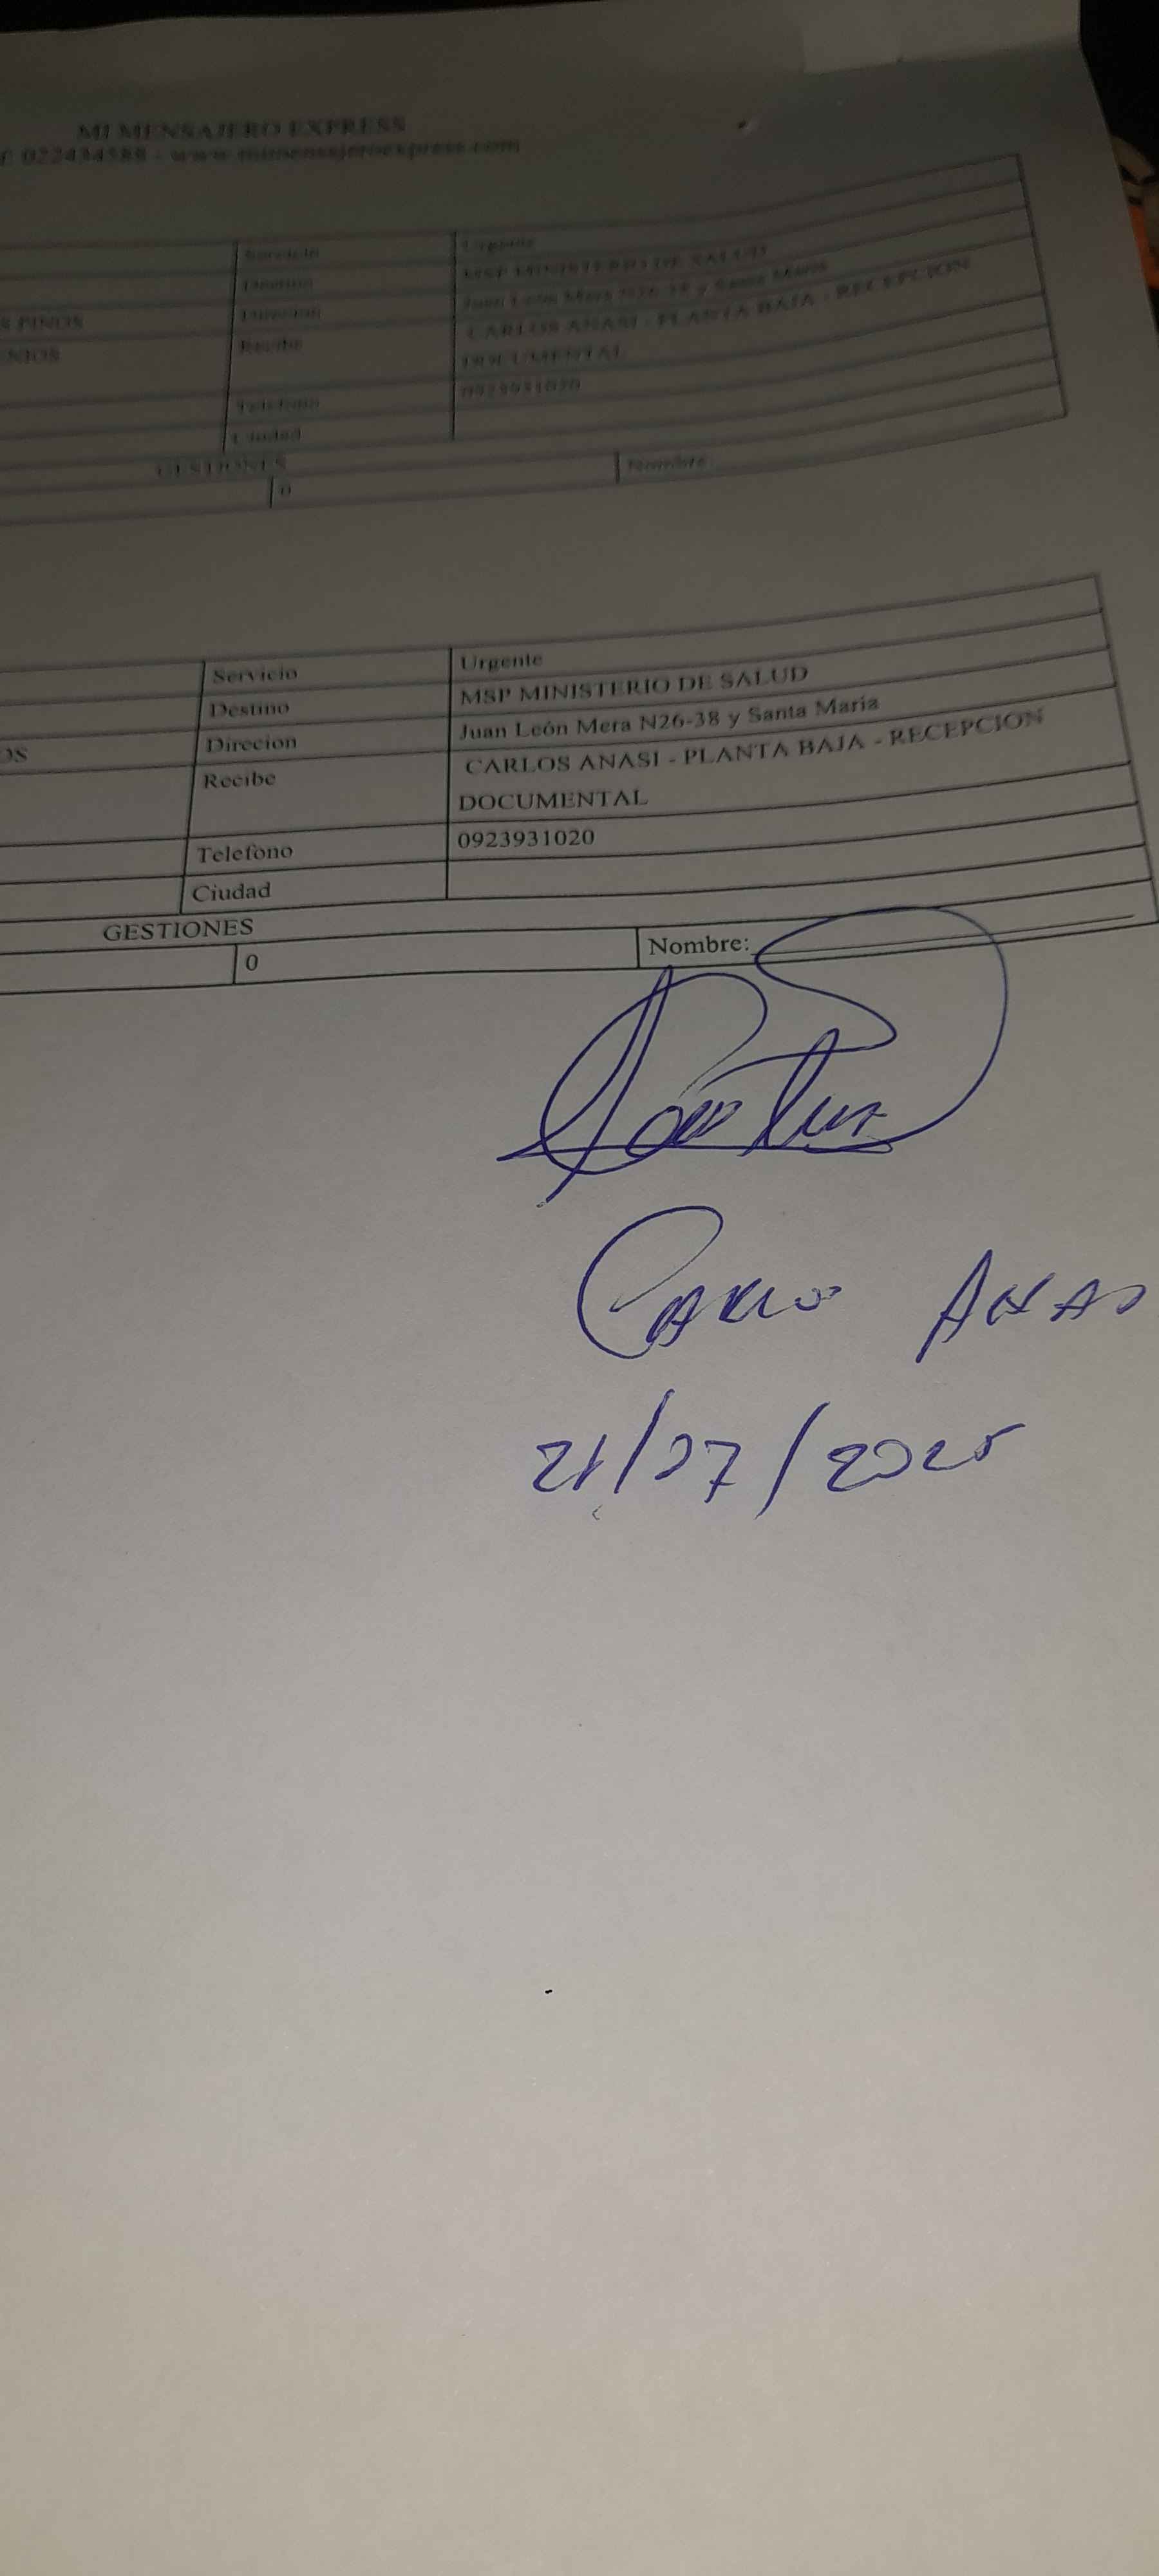 MI MENSAJERO EXPRESS
022434588 - www.mimensajeroexpress.com
Servicio Urgente
Destino MSP MINISTERIO DE SALUD
Direcion Juan León Mera N26-38 y Santa María
S PINOS
Recibe CARLOS ANASI - PLANTA BAJA - RECEPCION
NIOS
DOCUMENTAL
Telefono 0923931020
Ciudad
GESTIONES
0 Nombre:
Servicio Urgente
Destino MSP MINISTERIO DE SALUD
OS Direcion Juan León Mera N26-38 y Santa María
Recibe CARLOS ANASI - PLANTA BAJA - RECEPCION
DOCUMENTAL
Telefono 0923931020
Ciudad
GESTIONES
0 Nombre:
21/07/2025